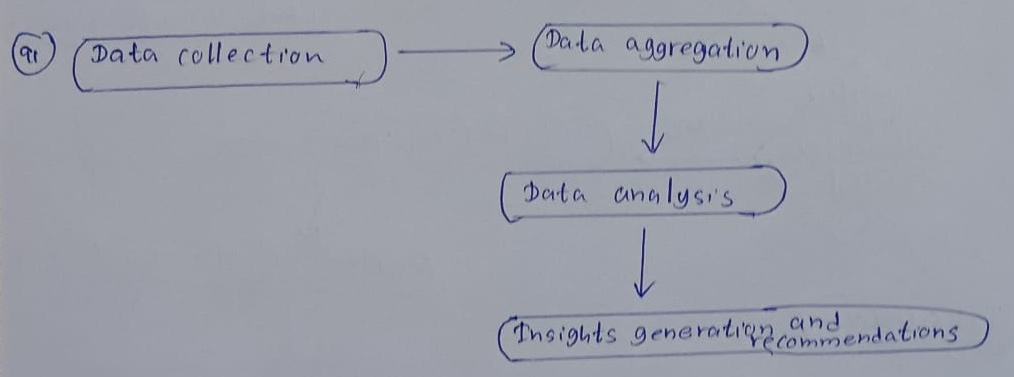 91
Data collection
Data aggregation
Data analysis
Insights generation and
recommendations